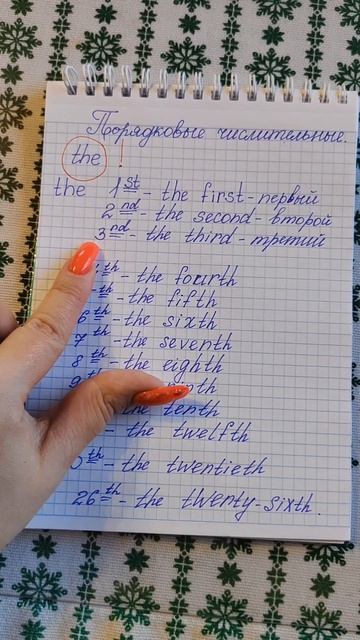 Порядковые числительные.
the !
the 1st - the first - первый
2nd - the second - второй
3nd - the third - третий
th - the fourth
th - the fifth
6th - the sixth
7th - the seventh
8th - the eighth
9th
the tenth
- the twelfth
th - the twentieth
26th - the twenty-sixth.